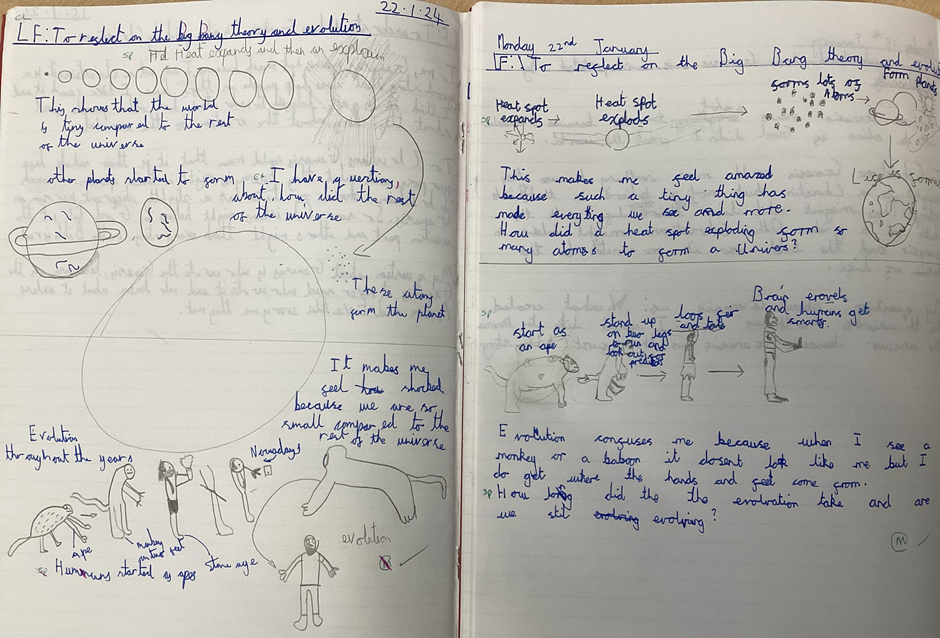 22.1.24
CL
LF: To reflect on the big bang theory and evolution
sp Heat expands and then an
This shows that the world
is tiny compared to the rest
of the universe
other plants started to form
I have a question,
about how did the rest
of the universe
These atoms
form the planet
It makes me
feel shocked
because we are so
small compared to the
rest of the universe
Evolution
throughout the years
Nowadays
ape
monkey
on two feet
stone age
evolution
Humuns started as apes
Monday 22nd January
LF: To reflect on the Big Bang theory and evolu
Heat spot
expands
Heat spot
explods
sp
forms lots of
Atoms
Form plants
Life is forme
This makes me feel amazed
because such a tiny thing has
made everything we see and more.
How did a heat spot exploding form so
many atoms to form a Univers?
sp
start as
an ape
stand up
on two legs
to run and
look out for
loos fur
and tails
Brain erovels
and humans get
smarts.
Evolution confuses me because when I see a
monkey or a baboon it dosent look like me but I
do get where the hands and feet come from.
sp How long did the the evolvation take and are
we stil evolving evolving?
M